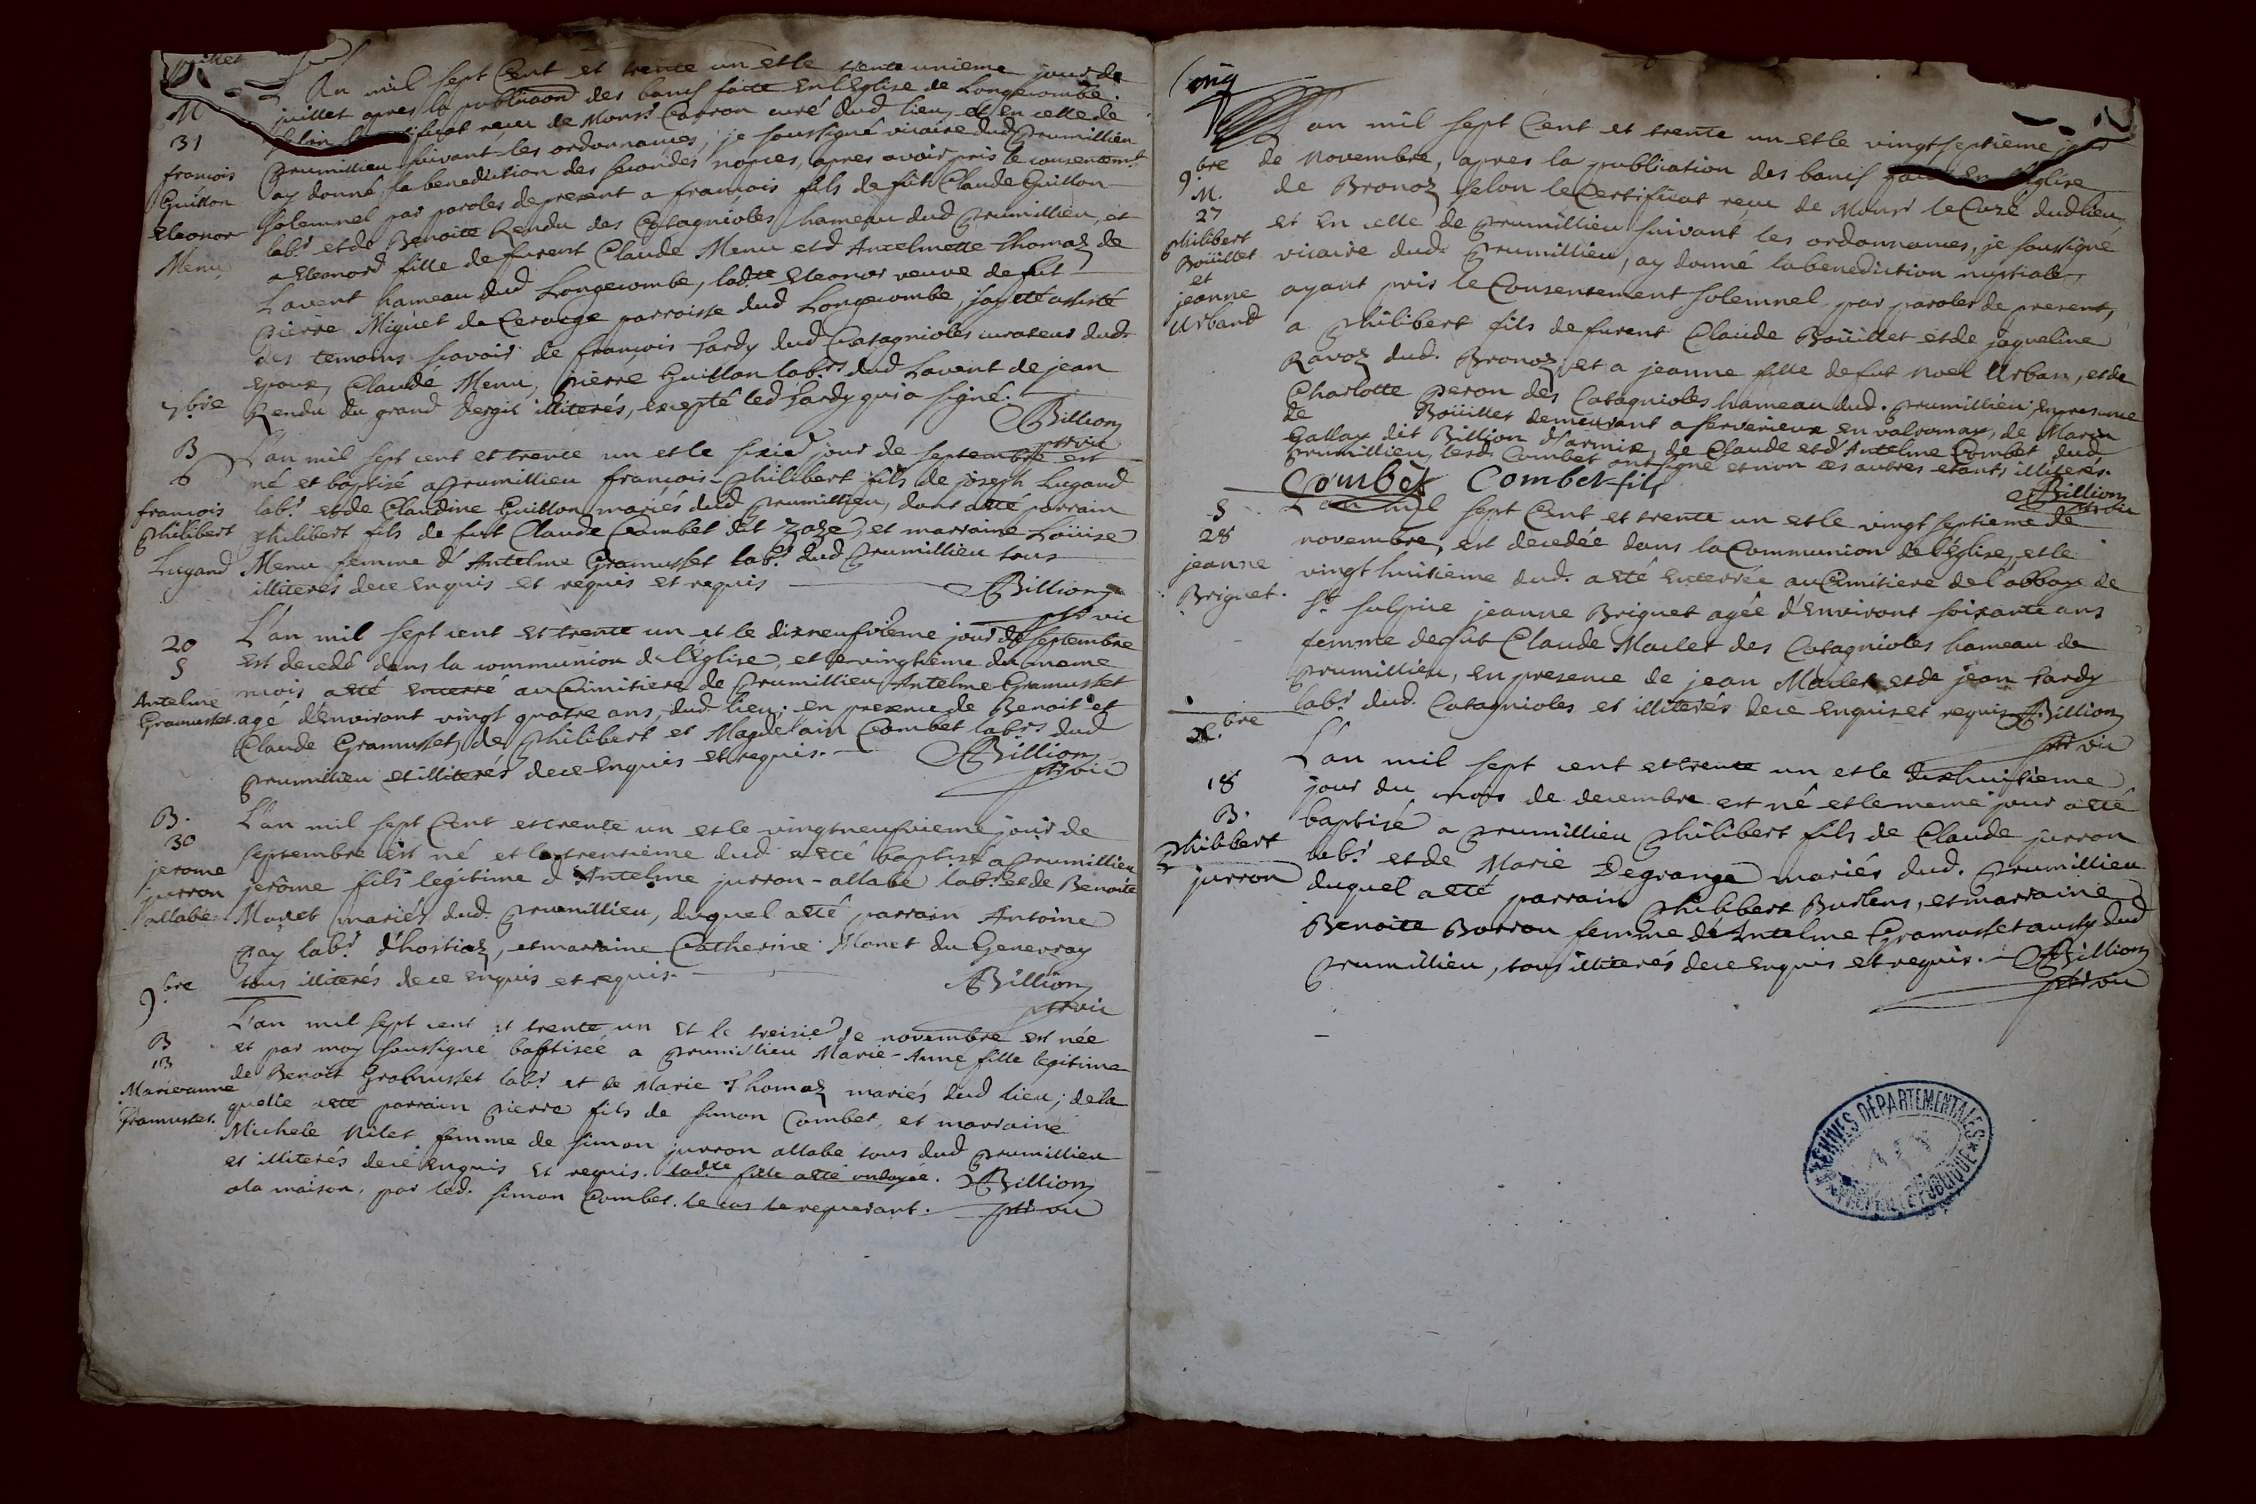 juillet
M
31
francois
Guillon
Eleonor
Menu
L'An mil sept Cent et trente un et le trente unieme jour de
juillet apres la publicaon des bancs faite En l'Eglise de Longecombe
selon le certificat receu de Monsr Carron curé dud lieu, et En celle de
prumillieu suivant les ordonnances, je soussigné vicaire dud prumillieu
ay donné la benediction des secondes nopces, apres avoir pris le consentemt
solemnel par paroles de present a francois fils de fût Claude Guillon
labr et de Benoite Rendu des Catagnioles hameau dud prumillieu, et
a Eleonord fille de furent Claude Menu et d'Antelmette Thomaz de
Lavent hameau dud Longecombe, ladte Eleonor veuve de fut
pierre Miguet de Cerouge parroisse dud Longecombe, j'ay eté assisté
des temoins scavoir de francois Tardy dud Catagnioles curateur dud
Epoux, Claude Menu, pierre Guillon labrs dud Lavent de jean
Rendu du grand Dergit illiterés, excepté led Tardy qui a signé.
Billion
ptr vic
7bre
B
6
francois
philibert
Lugand
L'an mil sept cent et trente un et le sixie jour de septembre est
né et baptisé a prumillieu francois-philibert fils de joseph Lugand
labr. et de Claudine Guillon mariés dud prumillieu, dont a eté parrain
philibert fils de fut Claude Combet dit Zoze, et marraine Loüise
Menu femme d'Antelme Gramusset labr. dud prumillieu tous
illiterés de ce enquis et requis et requis
Billion
ptr vic
20
S
Antelme
Gramusset.
L'an mil sept cent et trente un et le dixneufvieme jour de septembre
est decedé dans la communion de l'Eglise, et le vingtieme du meme
mois a eté enterré au Cimitiere de prumillieu Antelme Gramusset
agé d'environt vingt quatre ans, dud lieu; en presence de Benoit et
Claude Gramusset, de philibert et Magdelain Combet labrs dud
prumillieu et illiterés de ce enquis et requis.
Billion
ptr vic
B.
30
jerome
jurron
allabe
L'an mil sept Cent et trente un et le vingtneufvieme jour de
septembre est né et le trentieme dud a eté baptisé a prumillieu
jerôme fils legitime d'Antelme jurron-allabe labr et de Benoite
Monet mariés dud. prumillieu, duquel a eté parrain Antoine
Gay labr. d'hostiaz, et marraine Catherine Monet du Genevray
tous illiterés de ce enquis et requis.
Billion
ptr vic
9bre
B
13
Marieanne
Gramusset.
L'an mil sept cent et trente un et le treizie de novembre est née
et par moy soussigné baptisée a prumillieu Marie-Anne fille legitime
de Benoit Gramusset labr. et de Marie Thomaz mariés dud lieu; de la
quelle a eté parrain pierre fils de simon Combet, et marraine
Michele Nilet femme de simon jurron allabe tous dud prumillieu
et illiterés de ce enquis et requis. ladte fille a eté ondoyée.
a la maison, par led. simon Combet. le cas le requerant.
Billion
ptr vic
9.bre
M.
27
philibert
Boüillet
et
jeanne
Urband
L'an mil sept Cent et trente un et le vingtseptieme jour
de Novembre, apres la publication des bancs faite En l'Eglise
de Bronoz selon le Certificat receu de Monsr le Curé dud lieu,
et En celle de prumillieu suivant les ordonnances, je soussigné
vicaire dud. prumillieu, ay donné la benediction nuptiale,
ayant pris le Consentement solemnel par paroles de present,
a philibert fils de furent Claude Boüillet et de jaqueline
Ravoz dud. Bronoz, et a jeanne fille de fut Noel Urban, et de
Charlotte peron des Catagnioles hameau dud. prumillieu. En presence
de Boüillet demeurant a serverieux en valromay, de Marin
Gallay dit Billion d'armix, de Claude et d'Antelme Combet dud
prumillieu, lesd. Combet ont signé et non les autres etants illiterés.
Combet Combet fils
Billion
ptr vic
S
28
jeanne
Briguet.
L'an mil sept Cent et trente un et le vingt septieme de
novembre, est decedée dans la Communion de l'Eglise, et le
vingt huitieme dud. a eté enterrée au Cimitiere de l'abbaye de
St sulpice jeanne Briguet agée d'environt soixante ans
femme de fut Claude Maclet des Catagnioles hameau de
prumillieu, en presence de jean Maclet et de jean Tardy
labr. dud. Catagnioles et illiterés de ce enquis et requis
Billion
ptr vic
X.bre
18
B.
philibert
jurron
L'an mil sept cent et trente un et le dixhuitieme
jour du mois de decembre est né et le meme jour a eté
baptisé a prumillieu philibert fils de Claude jurron
labr. et de Marie Degrange mariés dud. prumillieu
duquel a eté parrain philibert Burlens, et marraine
Benoite Borron femme de Antelme Gramusset aussy dud
prumillieu, tous illiterés de ce enquis et requis.
Billion
ptr vic
ARCHIVES DÉPARTEMENTALES
AIN
RÉPUBLIQUE